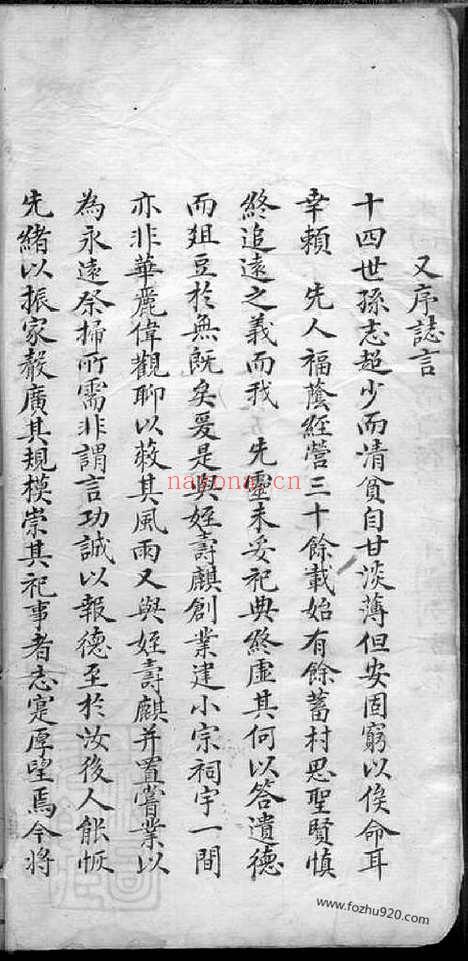 又序誌言
十四世孫志超少而清貧自甘淡薄但安固窮以俟命耳
幸賴 先人福蔭經營三十餘載始有餘蓄村思聖賢慎
終追遠之義而我 先靈未妥祀典終虛其何以答遺德
而俎豆於無既矣爰是與姪壽麒創業建小宗祠宇一間
亦非華麗偉觀聊以蔽其風雨又與姪壽麒并置嘗業以
為永遠祭掃所需非謂言功誠以報德至於汝後人能恢
先緒以振家教廣其規模崇其祀事者志寔厚望焉今將
nayona.cn
www.fozhu920.com